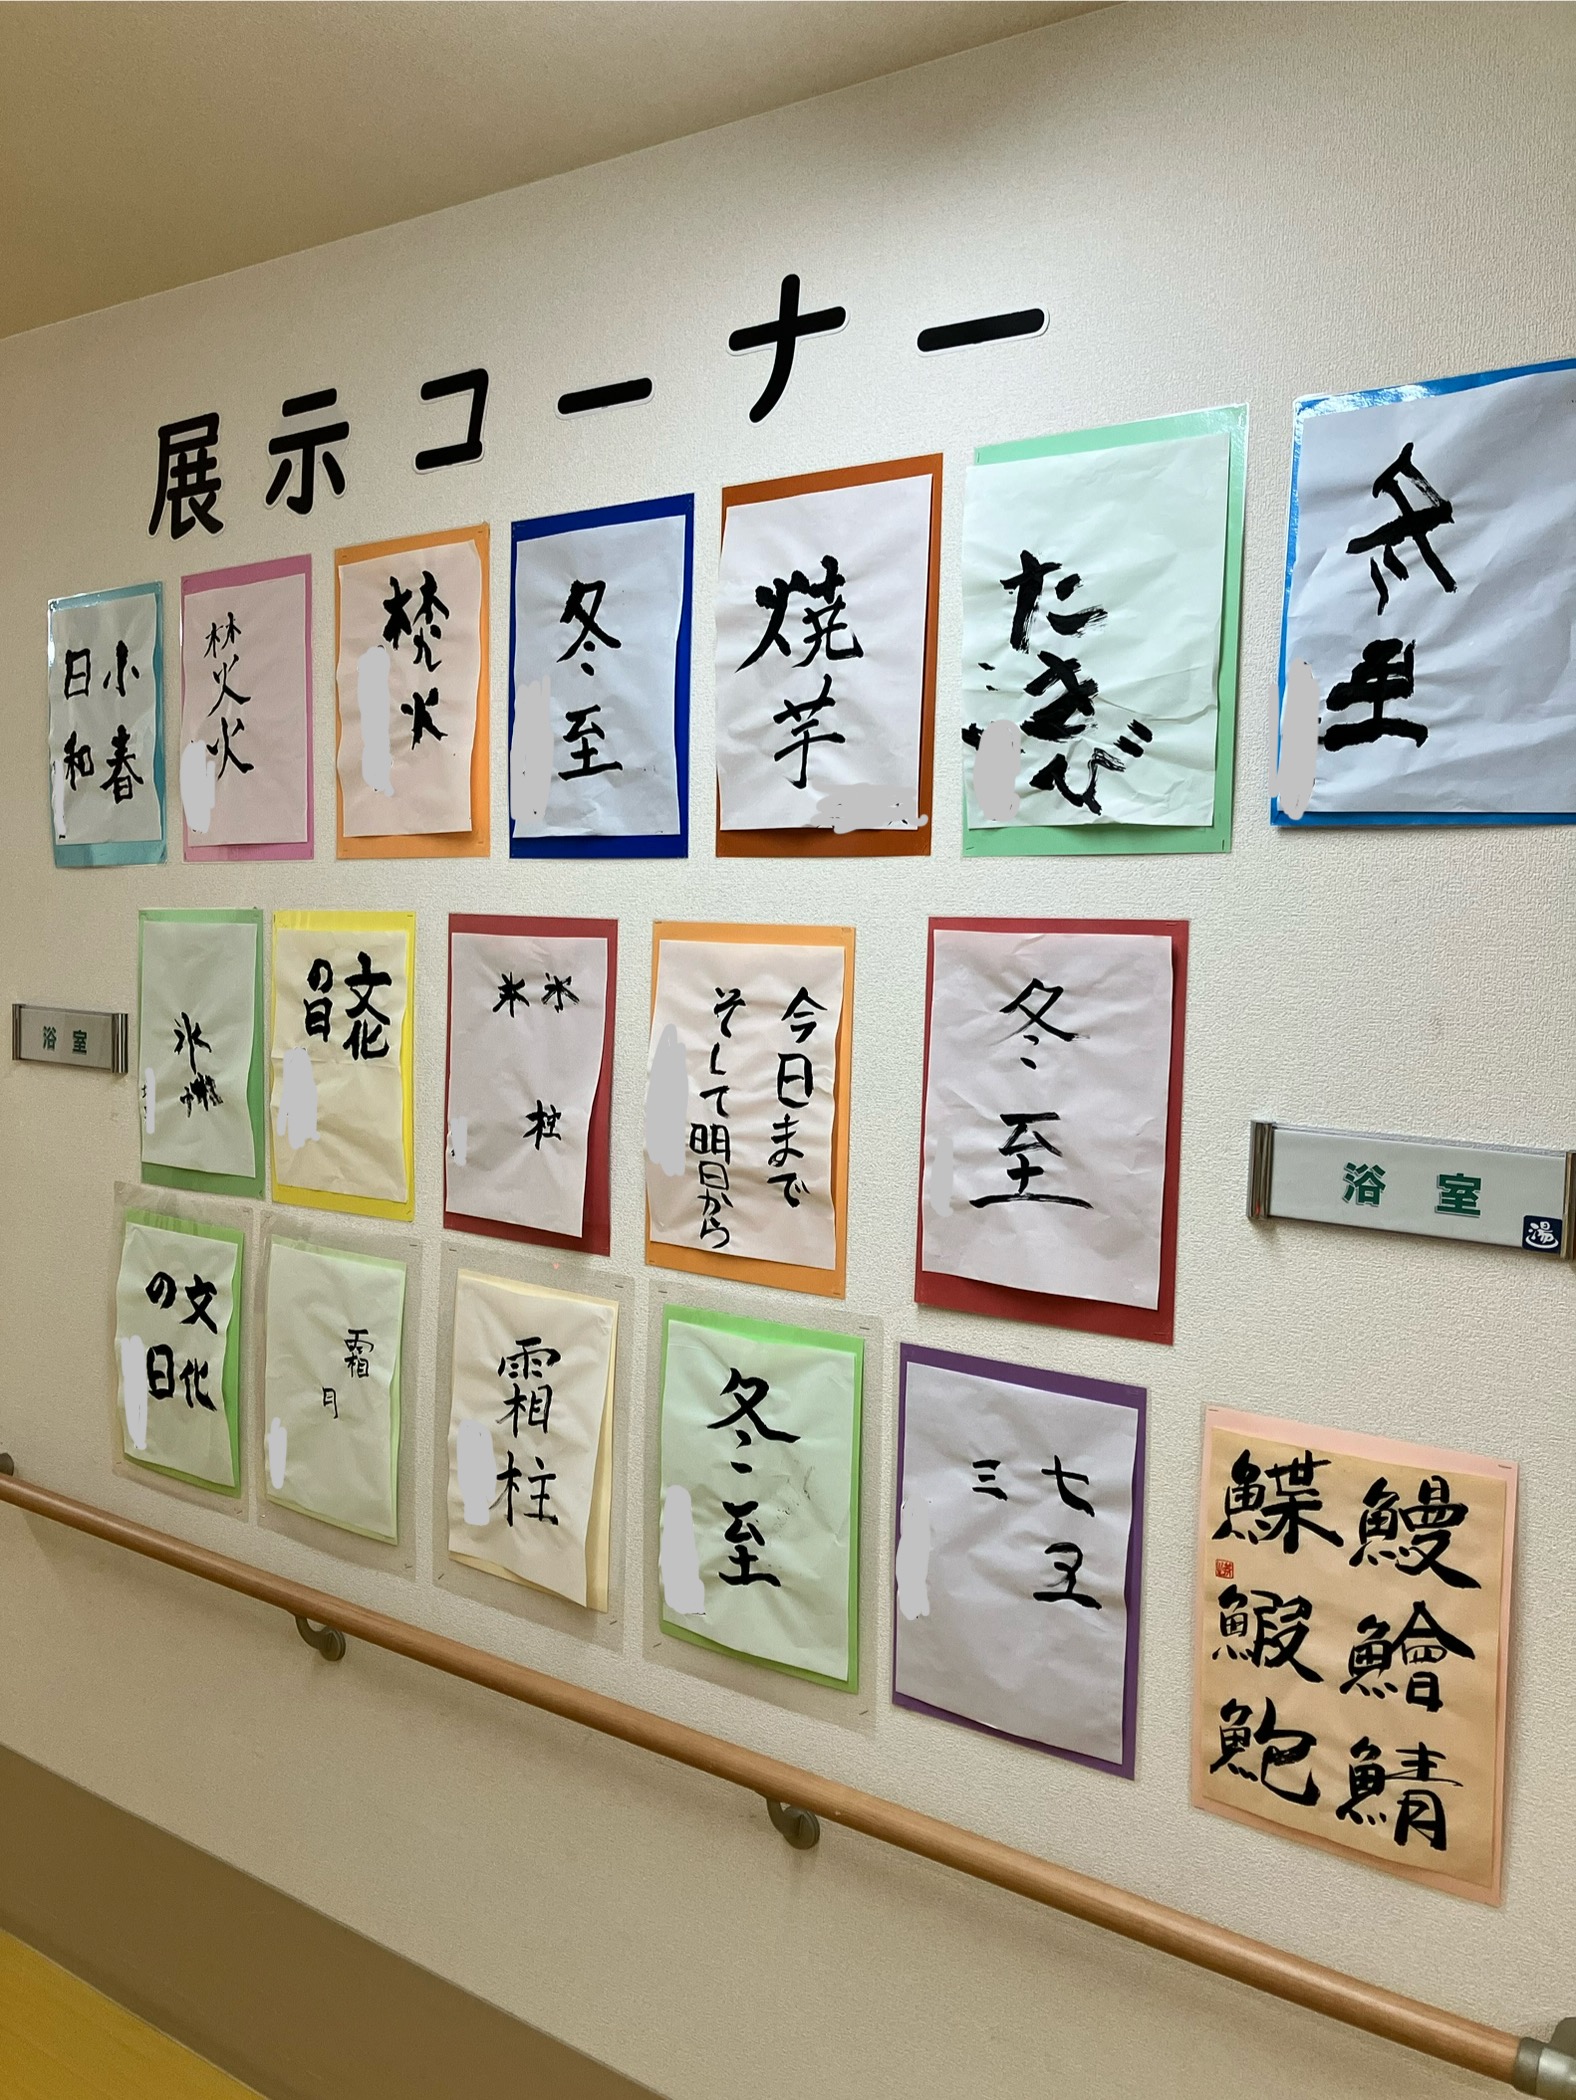 展示コーナー
小春
日和
焚火
焚火
冬至
焼芋
たきび
冬至
浴室
氷
文化
の日
氷
柱
今日まで
そして明日から
冬至
浴室
湯
文化
の日
霜
月
霜柱
冬至
七五
三
鰻鱠鯖
鰈鰕鮑